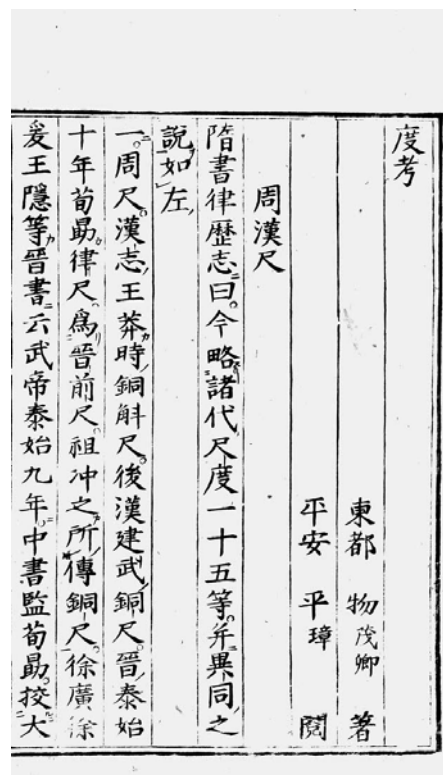 度考
東都 物茂卿 著
平安 平璋 閱
周漢尺
隋書律歷志曰。今略諸代尺度一十五等。并異同之
說如左
一。周尺。漢志王莽時銅斛尺。後漢建武銅尺。晉泰始
十年荀勗律尺。爲晉前尺。祖冲之所傳銅尺。徐廣徐
爰王隱等晉書云武帝泰始九年。中書監荀勗。挍大